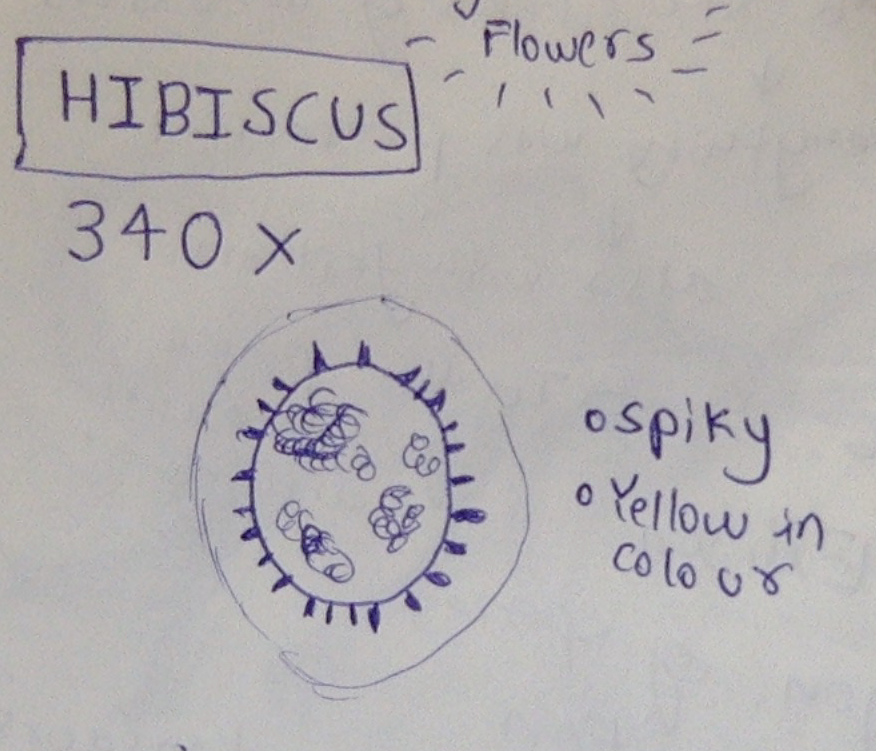 Flowers
HIBISCUS
340 x
spiky
Yellow in
colour